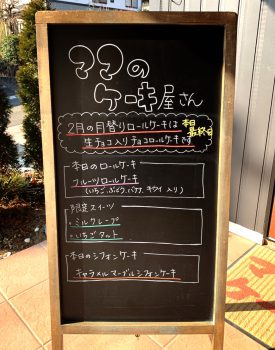 ママの
ケーキ屋さん
2月の月替りロールケーキは 本日最終日
生チョコ入りチョコロールケーキです
本日のロールケーキ
フルーツロールケーキ
(いちご、ぶどう、バナナ、キウイ 入り)
限定スイーツ
・ミルクレープ
・いちごタルト
本日のシフォンケーキ
キャラメルマーブルシフォンケーキ